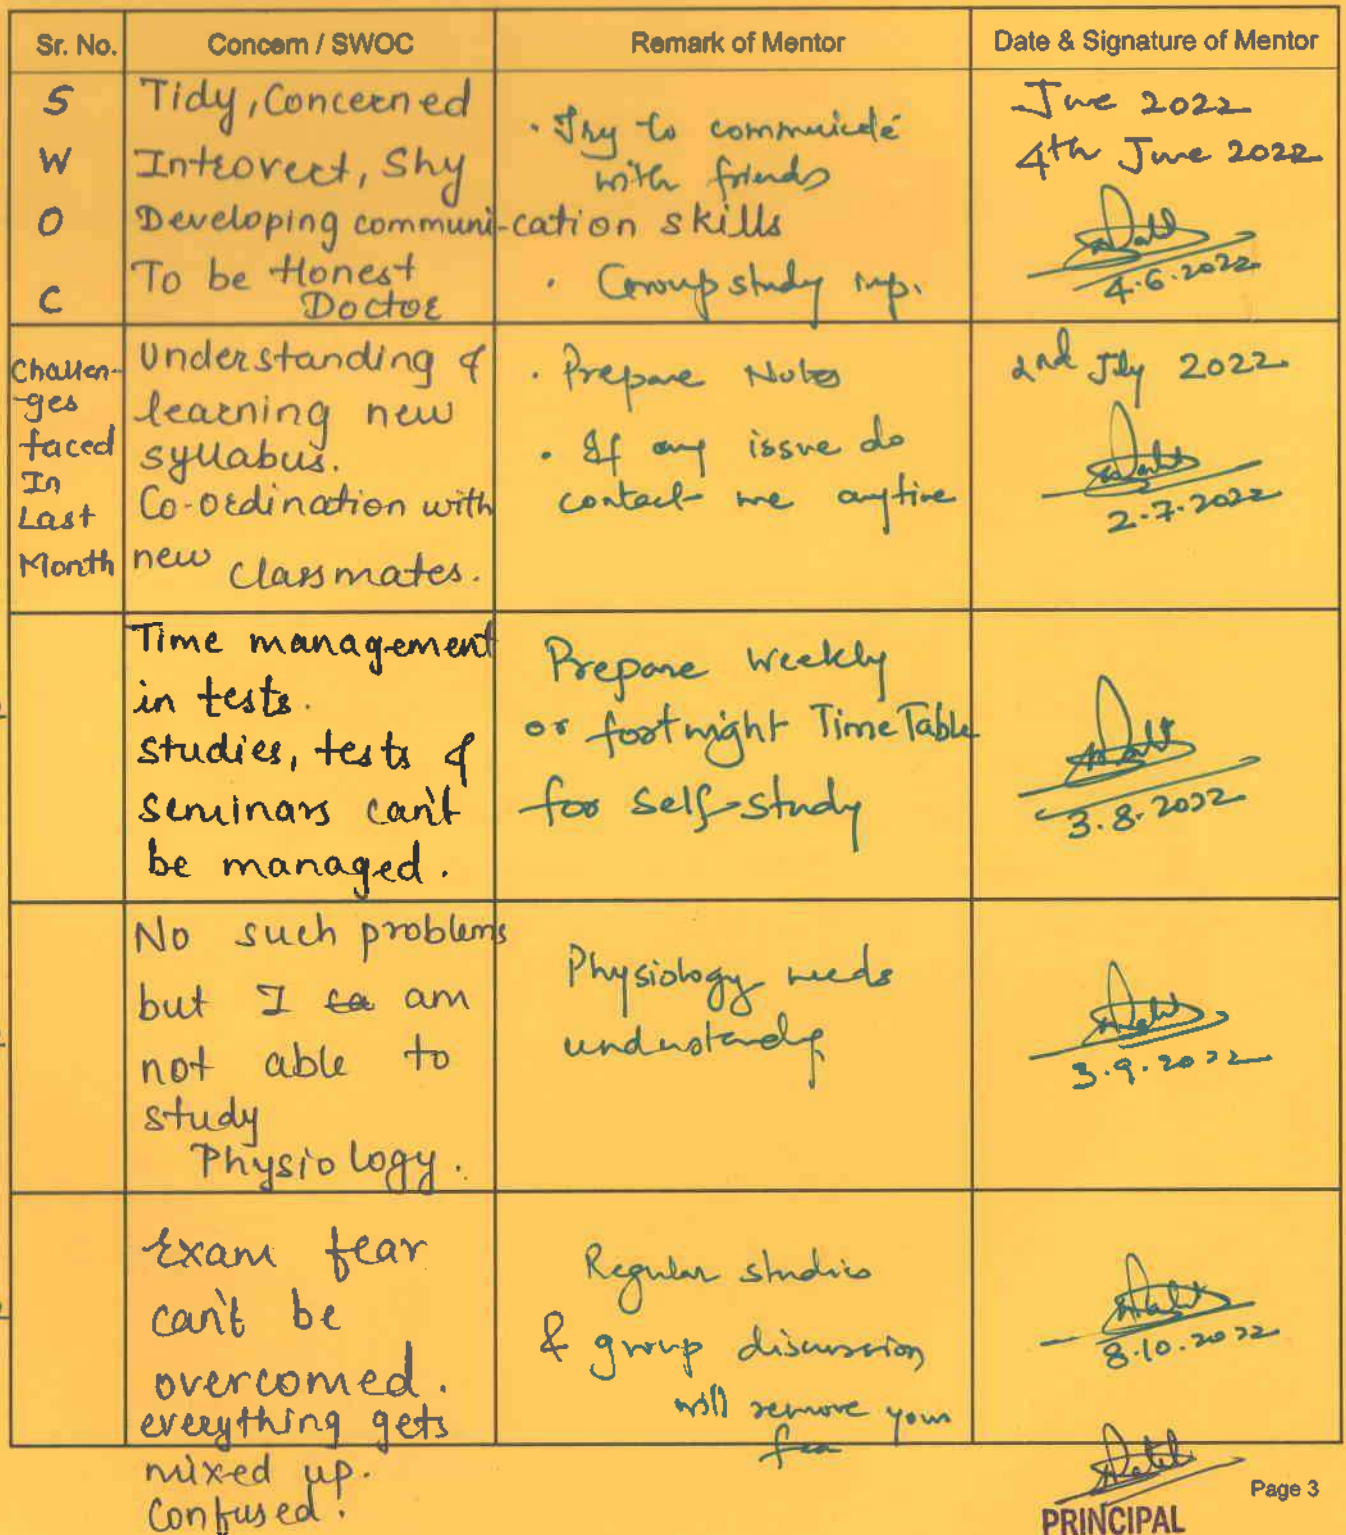 Sr. No. Concern / SWOC Remark of Mentor Date & Signature of Mentor
S Tidy, Concerned
W Introvert, Shy
O Developing communi-cation skills
C To be Honest
Doctor
· Try to communicate
with friends
· Group study imp.
June 2022
4th June 2022
4.6.2022
Challen-
ges
faced
In
Last
Month
Understanding &
learning new
syllabus.
Co-ordination with
new classmates.
· Prepare Notes
· If any issue do
contact me anytime
2nd July 2022
2.7.2022
Time management
in tests.
studies, tests &
seminars can't
be managed.
Prepare Weekly
or fortnight Time Table
for self-study
3.8.2022
No such problems
but I ca am
not able to
study
Physiology.
Physiology needs
understanding
3.9.2022
Exam fear
can't be
overcomed.
everything gets
mixed up.
Confused.
Regular studies
& group discussion
will remove your
fear
8.10.2022
PRINCIPAL
Page 3